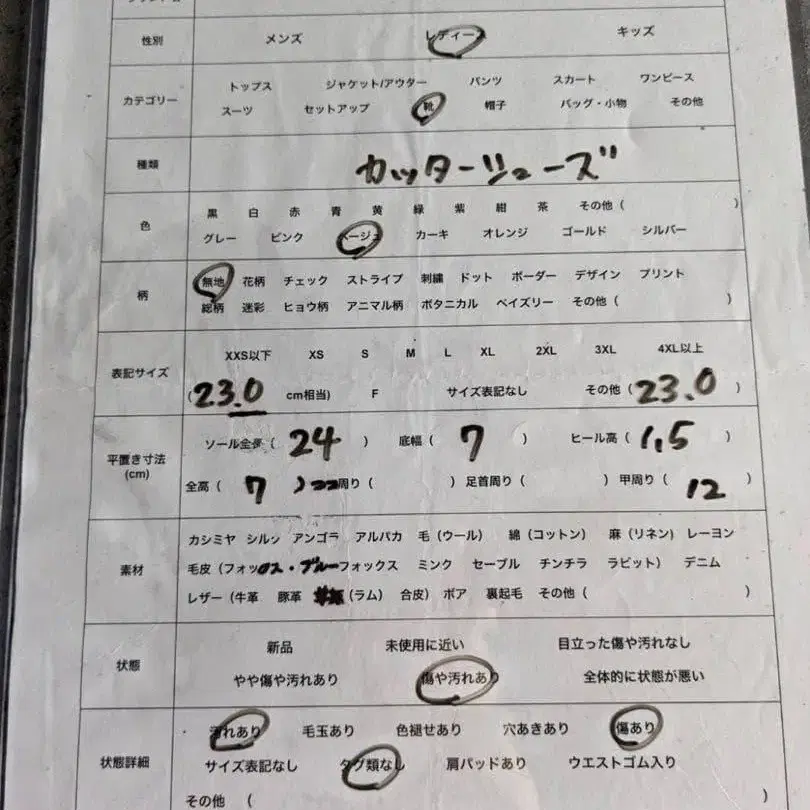 性別 メンズ レディース キッズ
カテゴリー トップス ジャケット/アウター パンツ スカート ワンピース
スーツ セットアップ 靴 帽子 バッグ・小物 その他
種類 カッターシューズ
色 黒 白 赤 青 黄 緑 紫 紺 茶 その他 ( )
グレー ピンク ベージュ カーキ オレンジ ゴールド シルバー
柄 無地 花柄 チェック ストライプ 刺繍 ドット ボーダー デザイン プリント
総柄 迷彩 ヒョウ柄 アニマル柄 ボタニカル ペイズリー その他 ( )
表記サイズ XXS以下 XS S M L XL 2XL 3XL 4XL以上
(23.0 cm相当) F サイズ表記なし その他 (23.0)
平置き寸法 (cm) ソール全長 ( 24 ) 底幅 ( 7 ) ヒール高 ( 1,5 )
全高 ( 7 ) 周り ( ) 足首周り ( ) 甲周り ( 12 )
素材 カシミヤ シルク アンゴラ アルパカ 毛 (ウール) 綿 (コットン) 麻 (リネン) レーヨン
毛皮 (フォックス・ブルーフォックス ミンク セーブル チンチラ ラビット) デニム
レザー (牛革 豚革 (ラム) 合皮) ボア 裏起毛 その他 ( )
状態 新品 未使用に近い 目立った傷や汚れなし
やや傷や汚れあり 傷や汚れあり 全体的に状態が悪い
状態詳細 汚れあり 毛玉あり 色褪せあり 穴あきあり 傷あり
サイズ表記なし タグ類なし 肩パッドあり ウエストゴム入り
その他 ( )